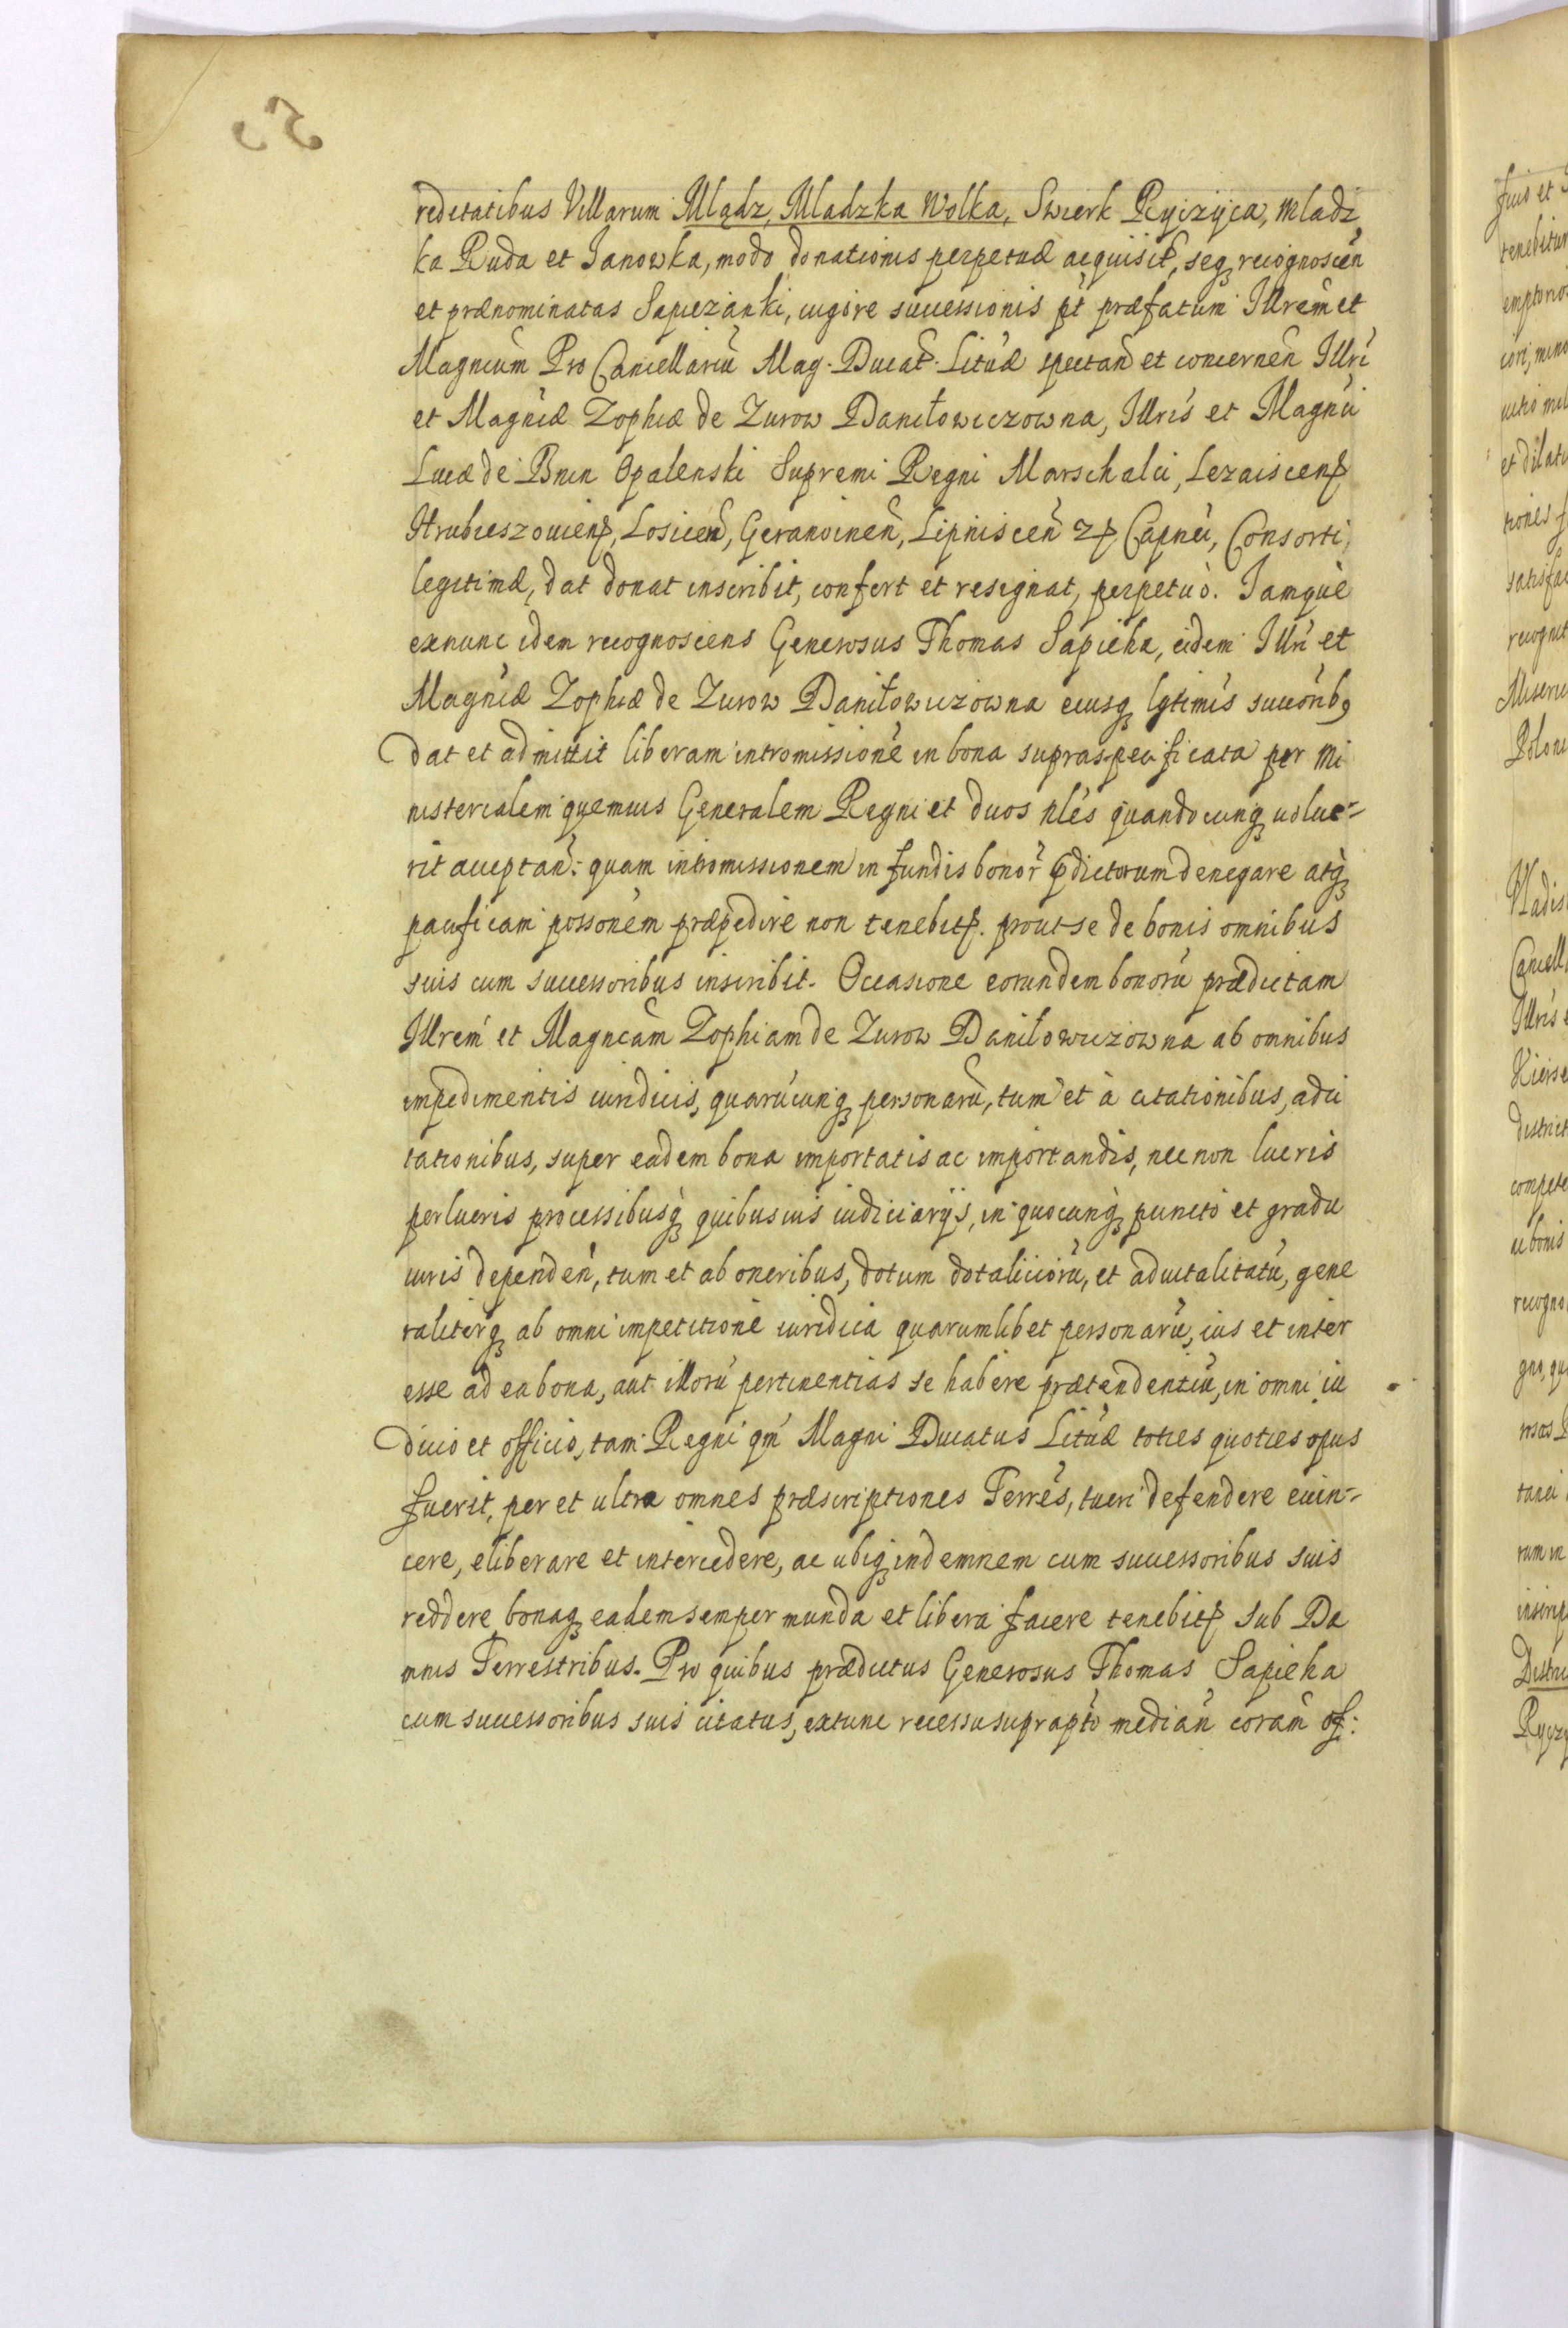 53
reditatibus Villarum Mlądz, Mladzka Wolka, Swierk Ryczyca, Mladz
ka Ruda et Janowka, modo donationis perpetuæ acquisit, seq recognoscen̄
et prænominatas Sapiezanki, iugire successionis pt præfatum Illrem et
Magncum Pro Cancellariū Mag. Ducat. Lituæ spectan̄ et concernen̄ Illri
et Magncæ Zophiæ de Zurow Daniłowiczowna, Illris et Magnci
Lucæ de Bnin Opalenski Supremi Regni Marschalci, Lezaiscen
Hrubieszovien, Losicen̄, Geranoinen̄, Lipniscen̄ Capnei, Consorti
legitimæ, dat donat inscribit, confert et resignat, perpetuò. Jamque
exnunc idem recognoscens Generosus Thomas Sapieha, eidem Illri et
Magncæ Zophiæ de Zurow Daniłowiczowna eiusq lgtimis succorib9
dat et admittit liberam intromissionē in bona supraspecificata per Mi
nisterialem quemuis Generalem Regni et duos nles quandocunq volue-
rit acceptan̄: quam intromissionem in fundis bonor̄ pdictorum denegare atq
pacificam possonem præpedire non tenebit. prout se de bonis omnibus
suis cum successoribus inscribit. Occasione eorundem bonorū prædictam
Illrem et Magncam Zophiam de Zurow Daniłowiczowna ab omnibus
impedimentis iuridicis, quarūcunq personarū, tum et à citationibus, adci
tationibus, super eadem bona importatis ac importandis, nec non lucris
perlucris processibusq quibusuis iudiciarijs, in quocunq puncto et gradu
iuris dependen̄, tum et ab oneribus, dotum dotaliciorū, et aduitalitatū, gene
raliterq ab omni impetitione iuridica quarumlibet personarū, ius et inter
esse ad ea bona, aut illorū pertinentias se habere prætendentiū, in omni iu
dicio et officio, tam Regni qm Magni Ducatus Lituæ toties quoties opus
fuerit, per et ultra omnes præscriptiones Terres, tueri defendere euin-
cere, eliberare et intercedere, ac ubiq indemnem cum successoribus suis
reddere bonaq eadem semper munda et libera facere tenebit sub Da
mnis Terrestribus. Pro quibus prædictus Generosus Thomas Sapieha
cum successoribus suis citatus, extunc recessu suprapto median̄ coram of: